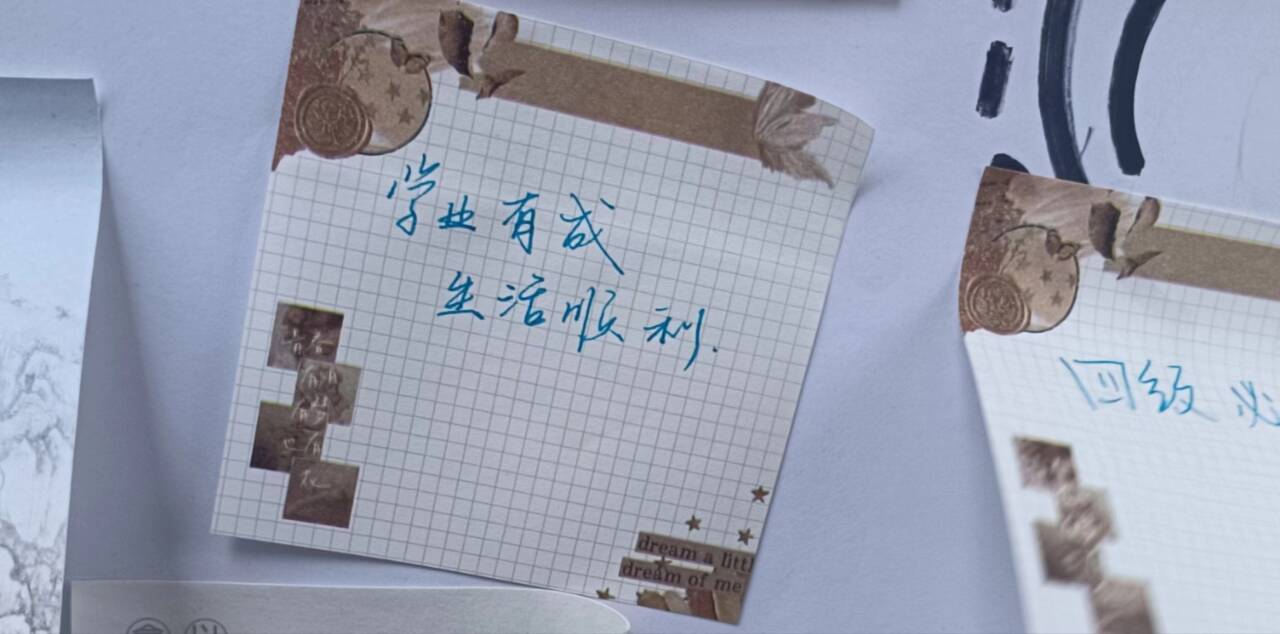 学业有成
生活顺利.
dream a littl
dream of me
四级必